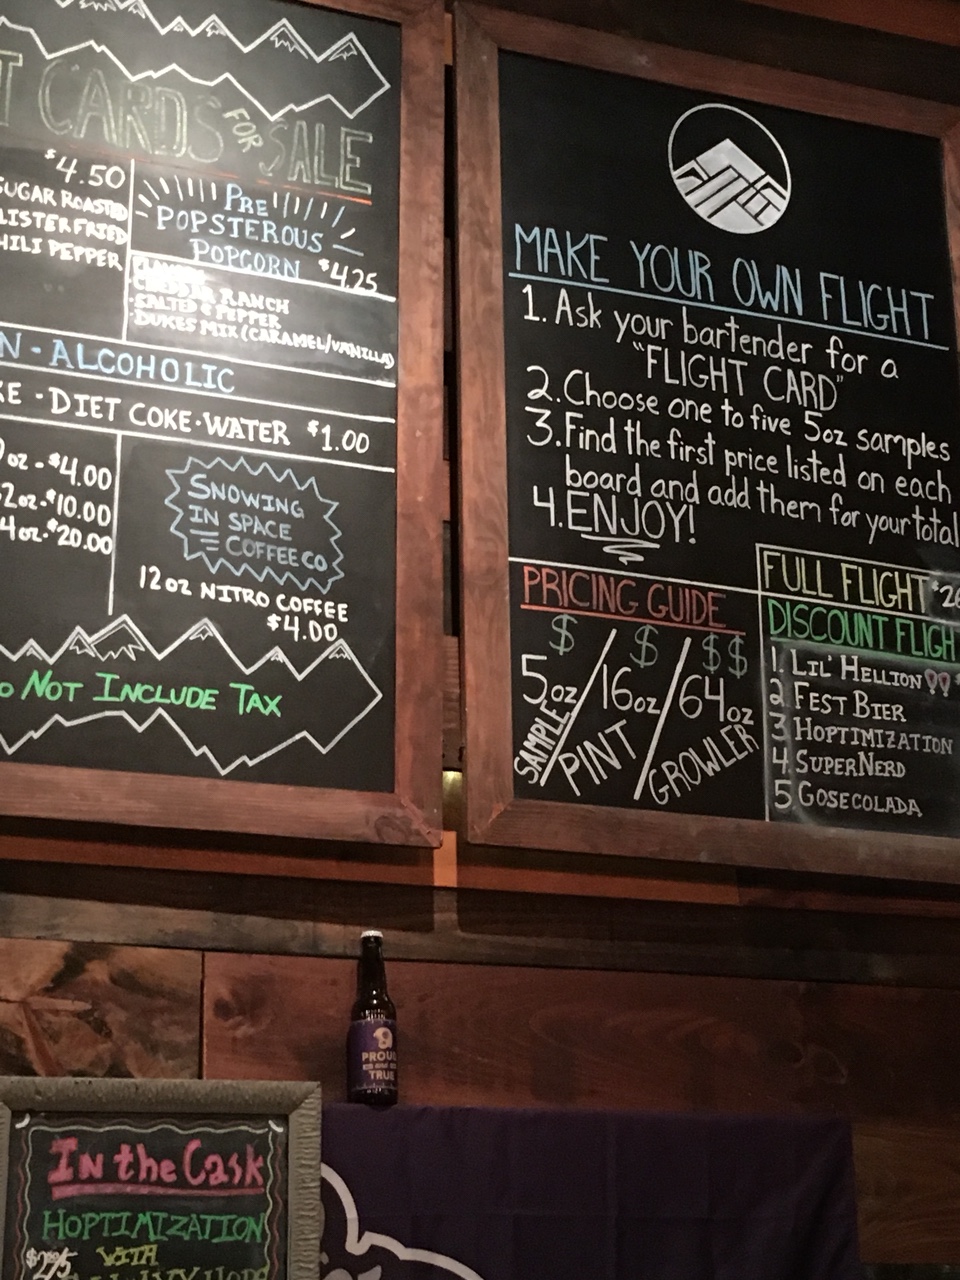 T CARDS FOR SALE
$4.50
SUGAR ROASTED
LISTER FRIED
HILI PEPPER
PRE
POPSTEROUS
POPCORN $4.25
CHEDDAR RANCH
·SALTED & PEPPER
·DUKES MIX (CARAMEL/VANILLA)
N-ALCOHOLIC
KE · DIET COKE · WATER $1.00
0oz - $4.00
2oz - $10.00
4oz - $20.00
SNOWING
IN SPACE
COFFEE CO
12oz NITRO COFFEE
$4.00
O NOT INCLUDE TAX
MAKE YOUR OWN FLIGHT
1. Ask your bartender for a
"FLIGHT CARD"
2. Choose one to five 5oz samples
3. Find the first price listed on each
board and add them for your total
4. ENJOY!
PRICING GUIDE
$ / $ / $$
5oz / 16oz / 64oz
SAMPLE / PINT / GROWLER
FULL FLIGHT $2
DISCOUNT FLIGH
1. LIL' HELLION
2 FEST BIER
3 HOPTIMIZATION
4 SUPERNERD
5 GOSECOLADA
PROUD
TRUE
IN the CASK
HOPTIMIZATION
WITH